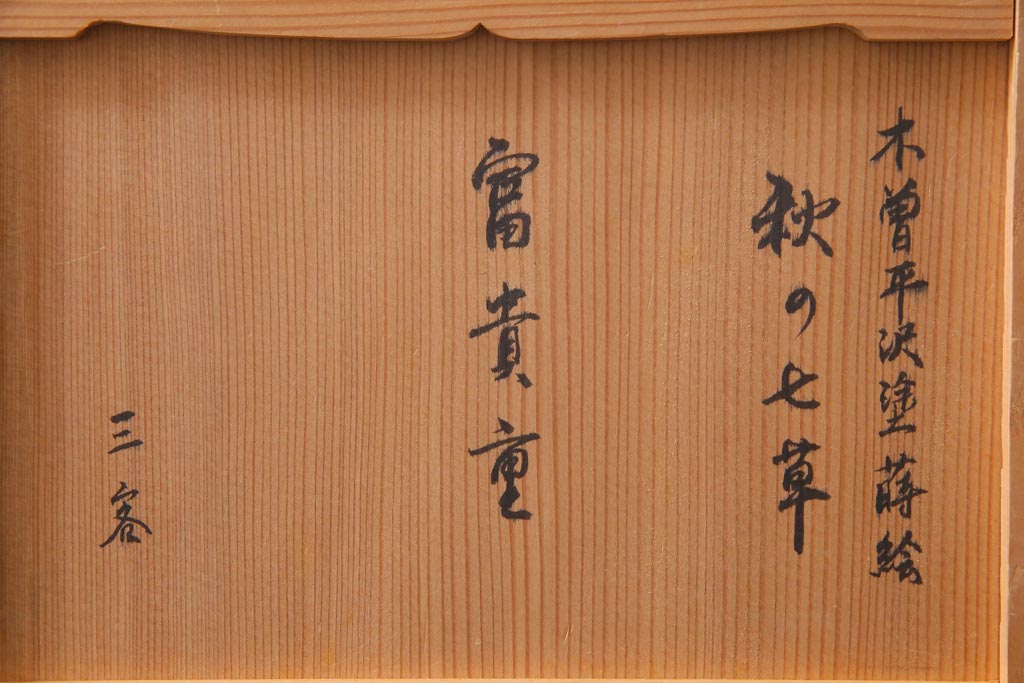 木曽平沢塗蒔絵
秋の七草
富貴重
三客